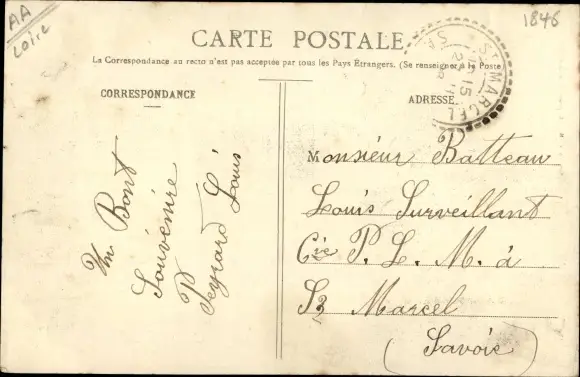 AA
Loire
1846
CARTE POSTALE
La Correspondance au recto n'est pas acceptée par tous les Pays Etrangers. (Se renseigner à la Poste
CORRESPONDANCE
ADRESSE
ST MARCEL
Un Bont
Souvenire
Peyrard Louis
Monsieur Batteau
Louis Surveillant
Cie P. L. M. à
St Marcel
(Savoie)